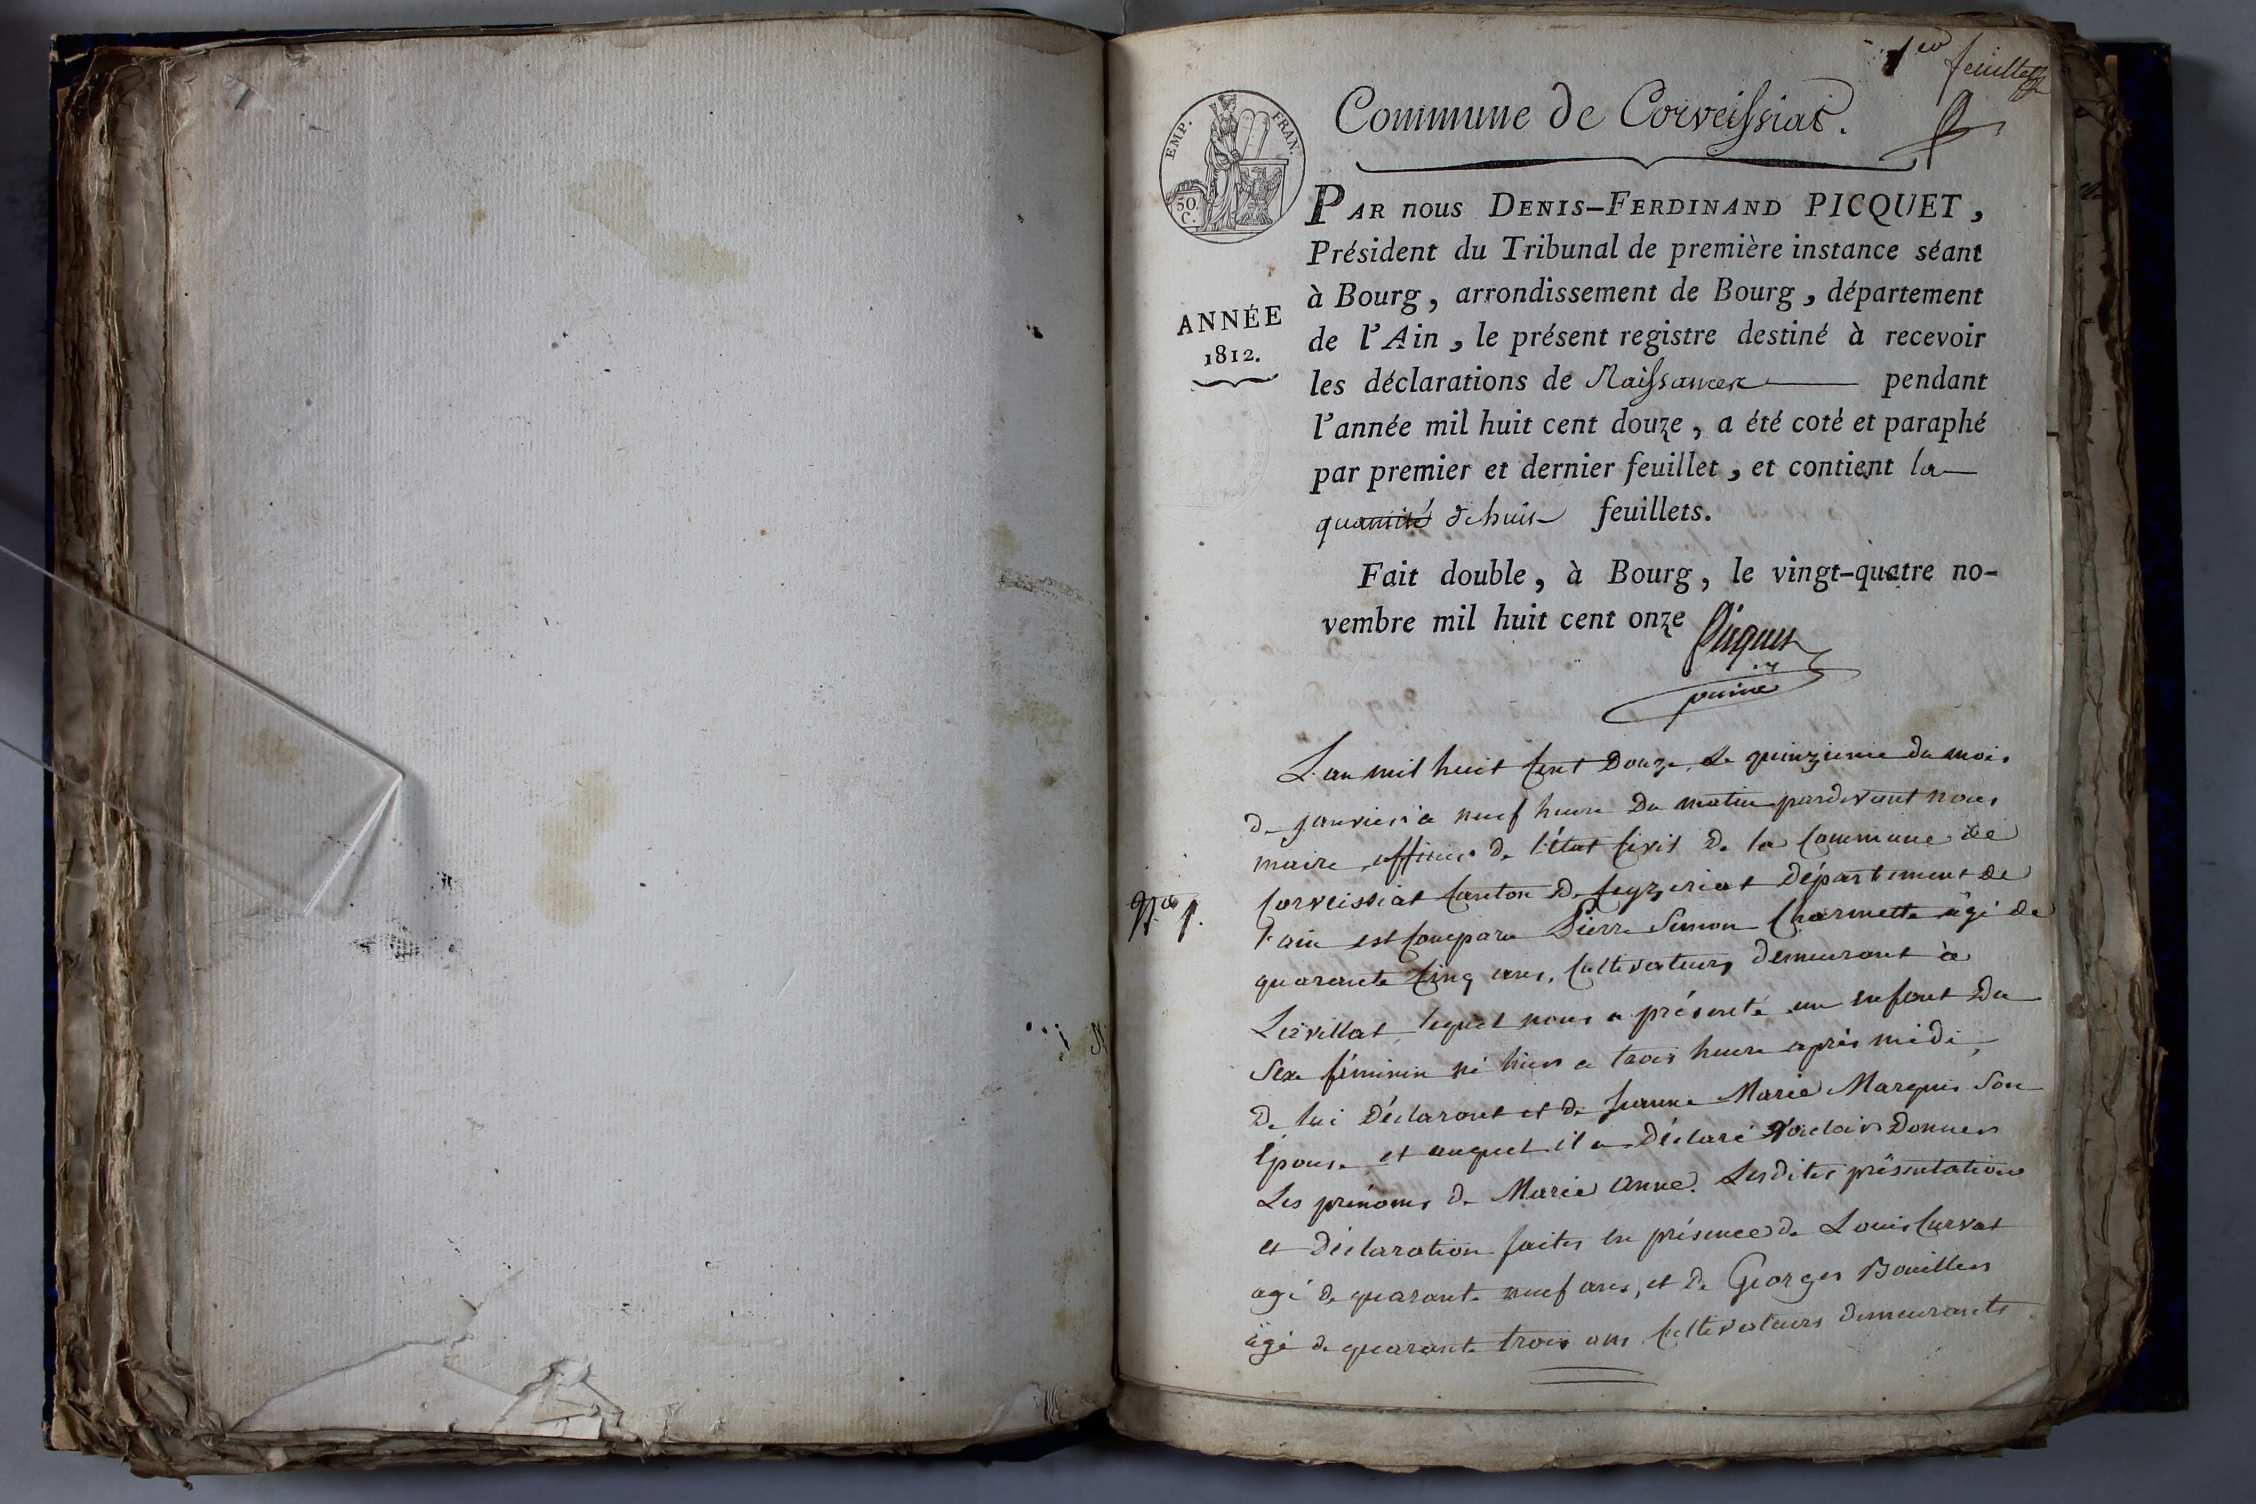 1er feuillet
Commune de Corveissiat.
EMP. FRAN.
50.
C.
PAR nous DENIS-FERDINAND PICQUET,
Président du Tribunal de première instance séant
à Bourg, arrondissement de Bourg, département
ANNÉE
1812.
de l'Ain, le présent registre destiné à recevoir
les déclarations de Naissances pendant
l'année mil huit cent douze, a été coté et paraphé
par premier et dernier feuillet, et contient la
quantité de huit feuillets.
Fait double, à Bourg, le vingt-quatre no-
vembre mil huit cent onze
Picquet
L'an mil huit Cent Douze, Le quinzieme du mois
de janvier à neuf heure Du matin pardevant nous
maire officier de l'état Civil De la Commune de
Corveissiat Canton De Ceyzeriat Département de
N.o 1.
l'ain est Comparu Pierre Simon Charmette âgé de
quarante Cinq ans, Cultivateur, demeurant à
lequel nous a présenté un enfant Du
Sexe féminin né hier a trois heure après midi,
De lui Déclarant et de Jeanne Marie Marquis Son
Epouse et auquel il a Déclaré Vouloir Donner
Les prénoms de Marie Anne. Lesdites présentation
et Déclaration faites en présence de Louis Curvat
agé de quarante neuf ans, et de Georges Bouiller
âgé de quarante trois ans Cultivateurs demeurants